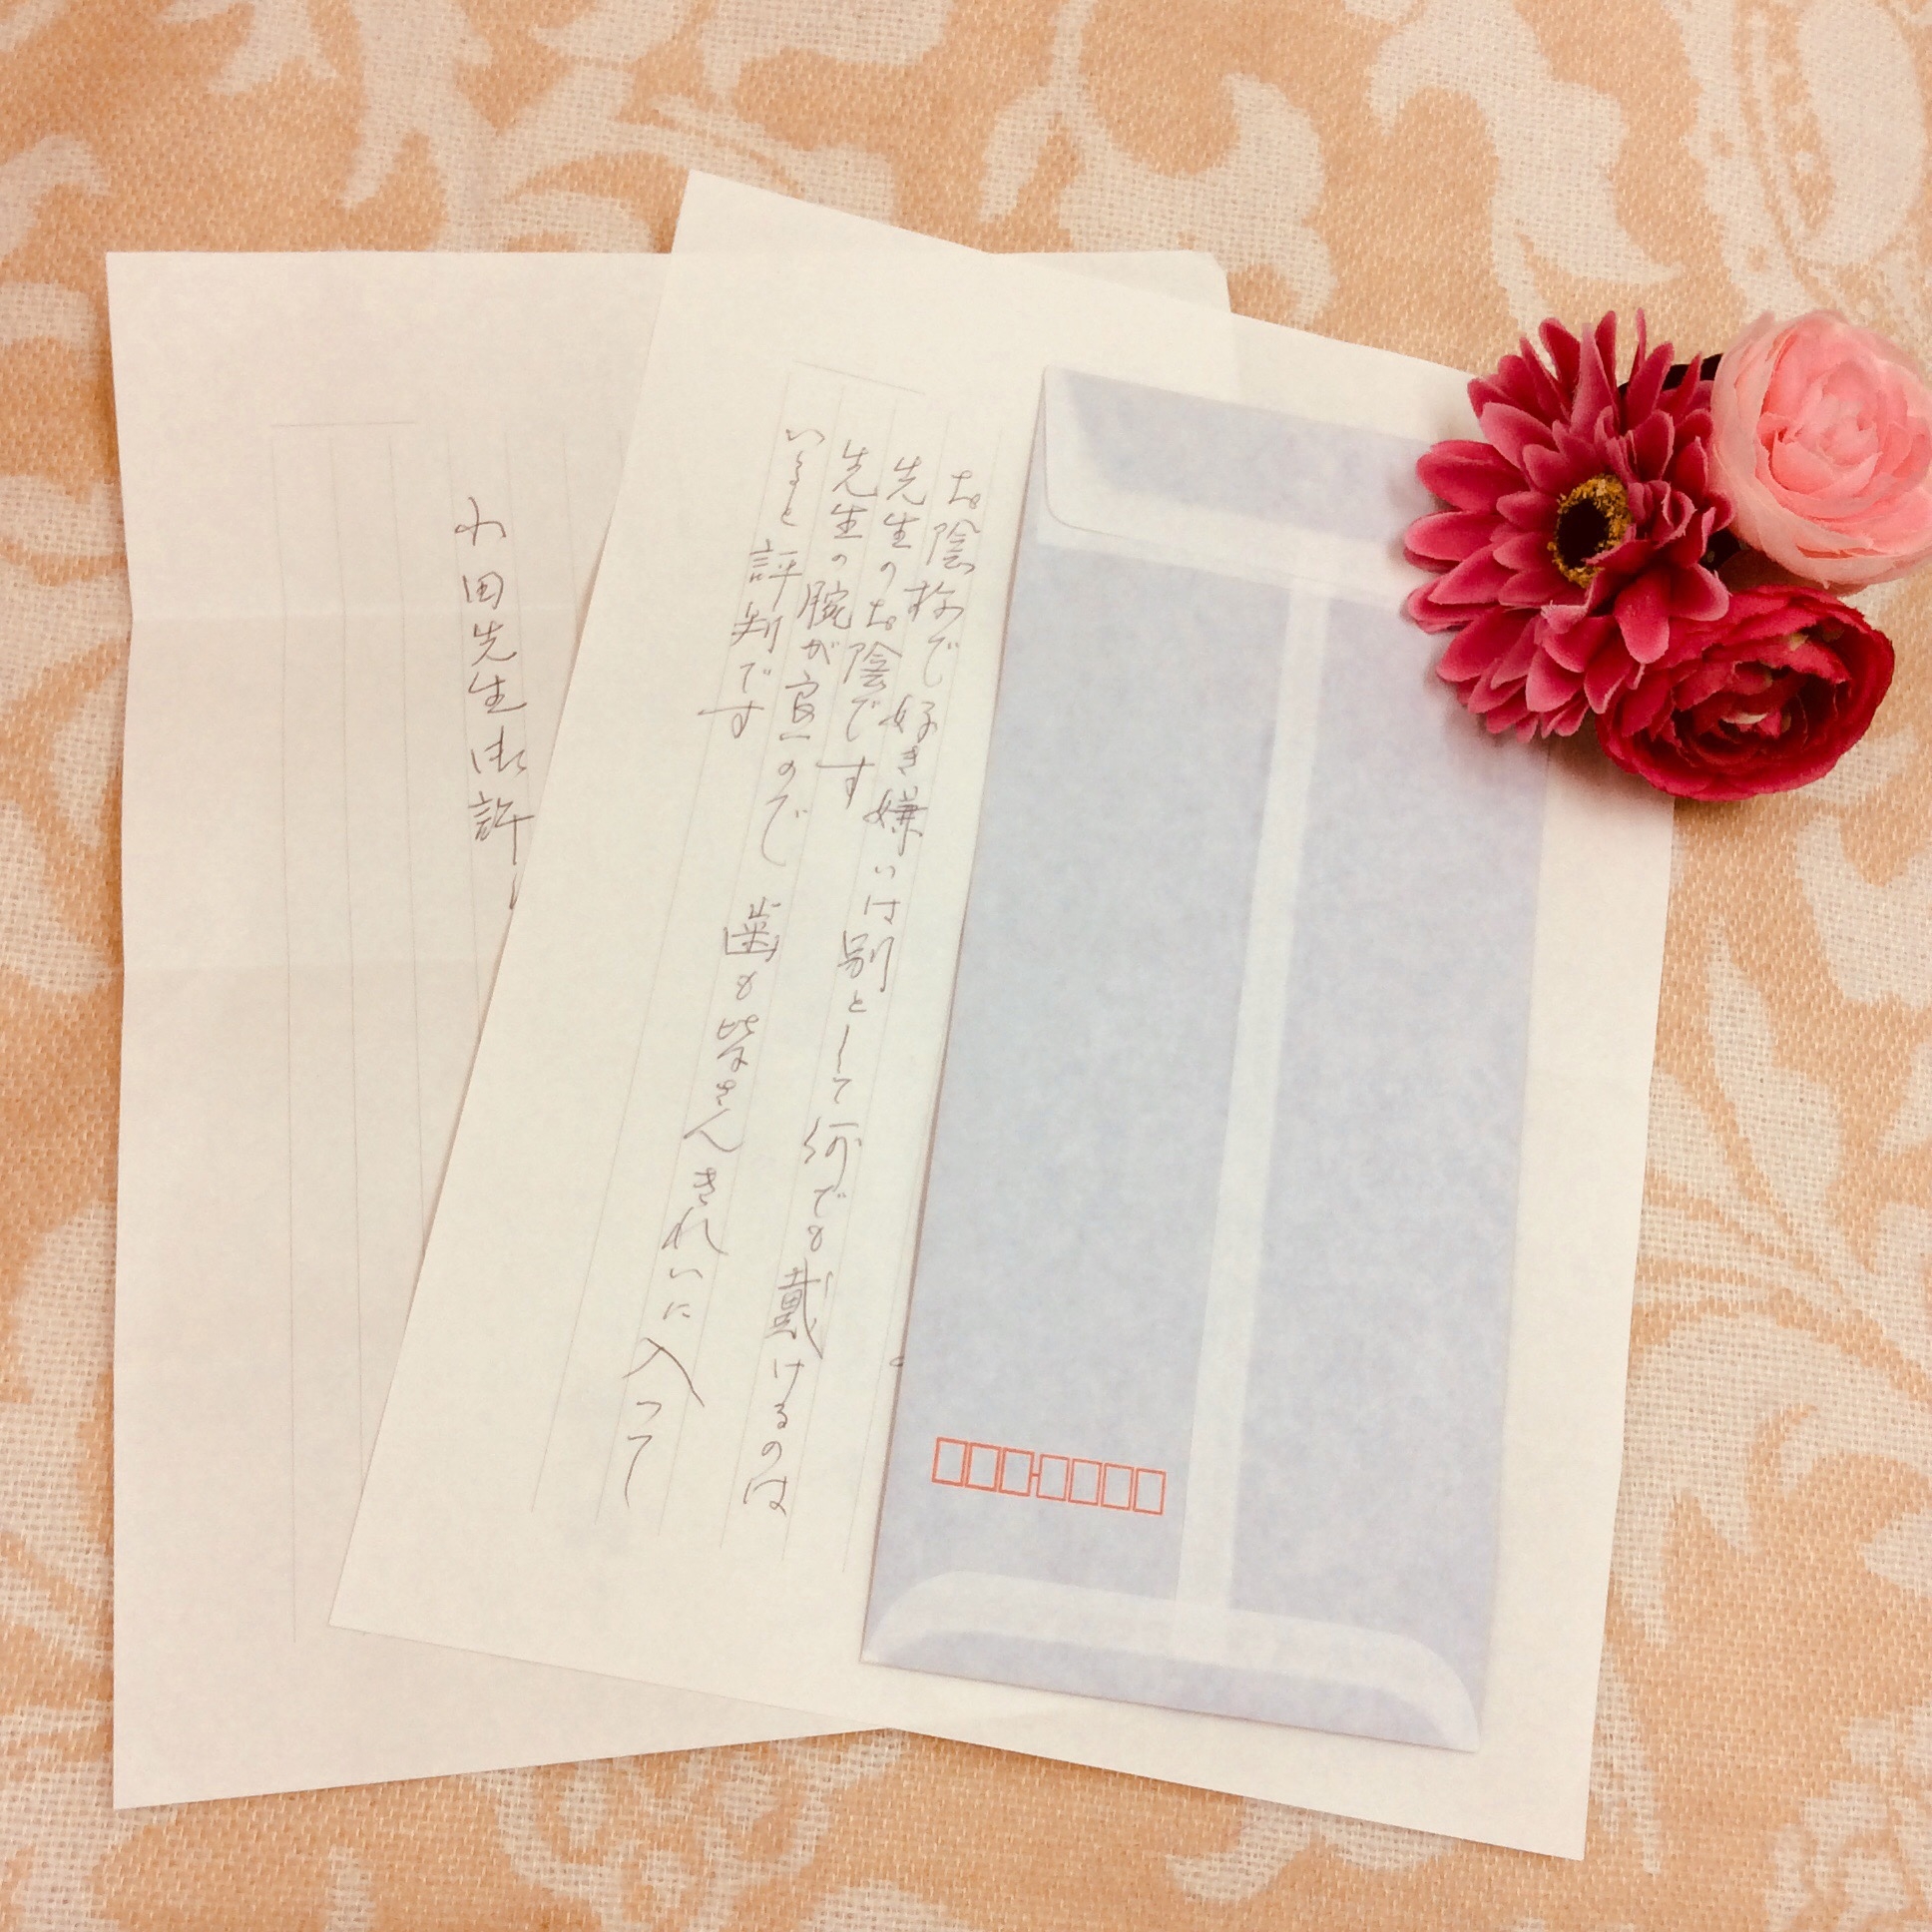 お陰様で好き嫌いは別として何でも戴けるのは
先生のお陰です
先生の腕が宜いので歯も皆さんきれいに入って
いると評判です
田先生御許